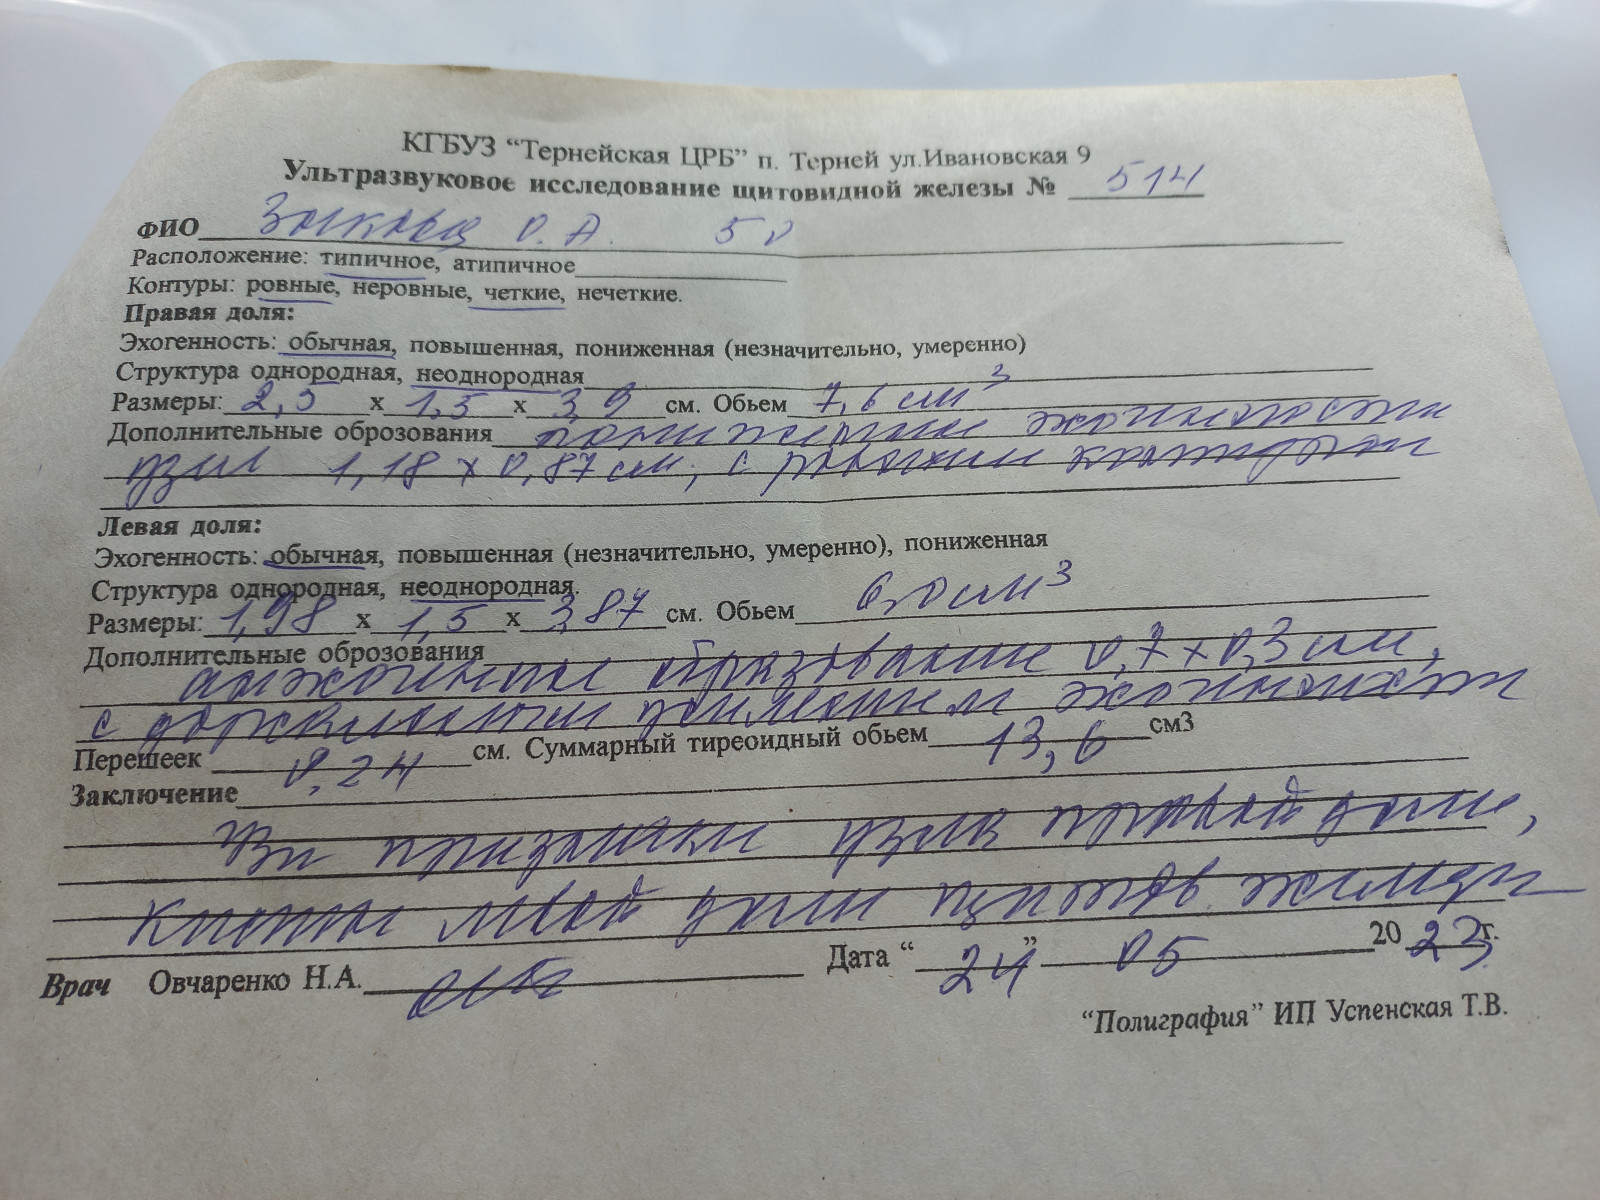 КГБУЗ “Тернейская ЦРБ” п. Терней ул.Ивановская 9
Ультразвуковое исследование щитовидной железы № 514
ФИО О. А.
Расположение: типичное, атипичное
Контуры: ровные, неровные, четкие, нечеткие.
Правая доля:
Эхогенность: обычная, повышенная, пониженная (незначительно, умеренно)
Структура однородная, неоднородная
Размеры: х 1,5 х 3,9 см. Обьем 7,6 см³
Дополнительные оброзования пониженной эхогенности
узел 1,18 х 0,87 см, с контуром
Левая доля:
Эхогенность: обычная, повышенная (незначительно, умеренно), пониженная
Структура однородная, неоднородная.
Размеры: 1,98 х 1,5 х 3,87 см. Обьем 6,0 см³
Дополнительные оброзования
анэхогенное образование 0,7 х 0,3 см,
с дорсальным усилением эхогенности
Перешеек 0,24 см. Суммарный тиреоидный обьем 13,6 см3
Заключение
Эхо признаки узла правой доли,
кисты левой доли щитов. железы
Врач Овчаренко Н.А. Дата “24” 05 2023г.
“Полиграфия” ИП Успенская Т.В.